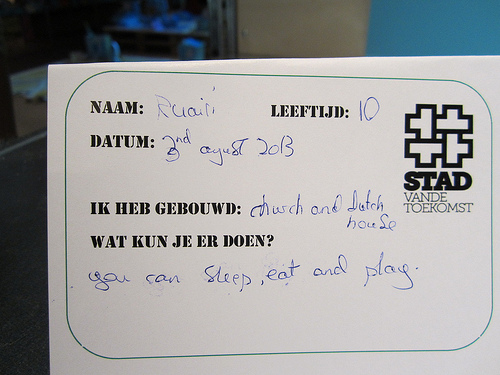 NAAM: Ruairi LEEFTIJD: 10
DATUM: 3nd august 2013
STAD
VANDE
TOEKOMST
IK HEB GEBOUWD: church and dutch
house
WAT KUN JE ER DOEN?
you can sleep, eat and play.